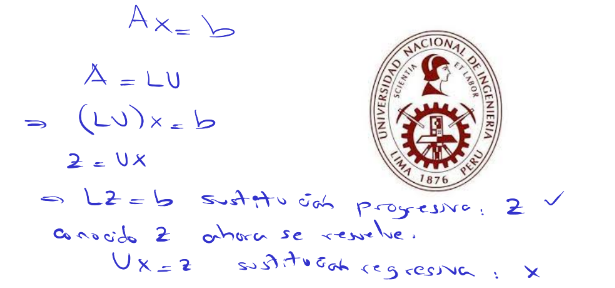 Ax = b
A = LU
⇒ (LU)x = b
z = Ux
⇒ Lz = b sustitución progresiva: z ✓
conocido z ahora se resuelve.
Ux = z sustitución regresiva: x
UNIVERSIDAD NACIONAL DE INGENIERIA
SCIENTIA ET LABOR
LIMA 1876 PERU